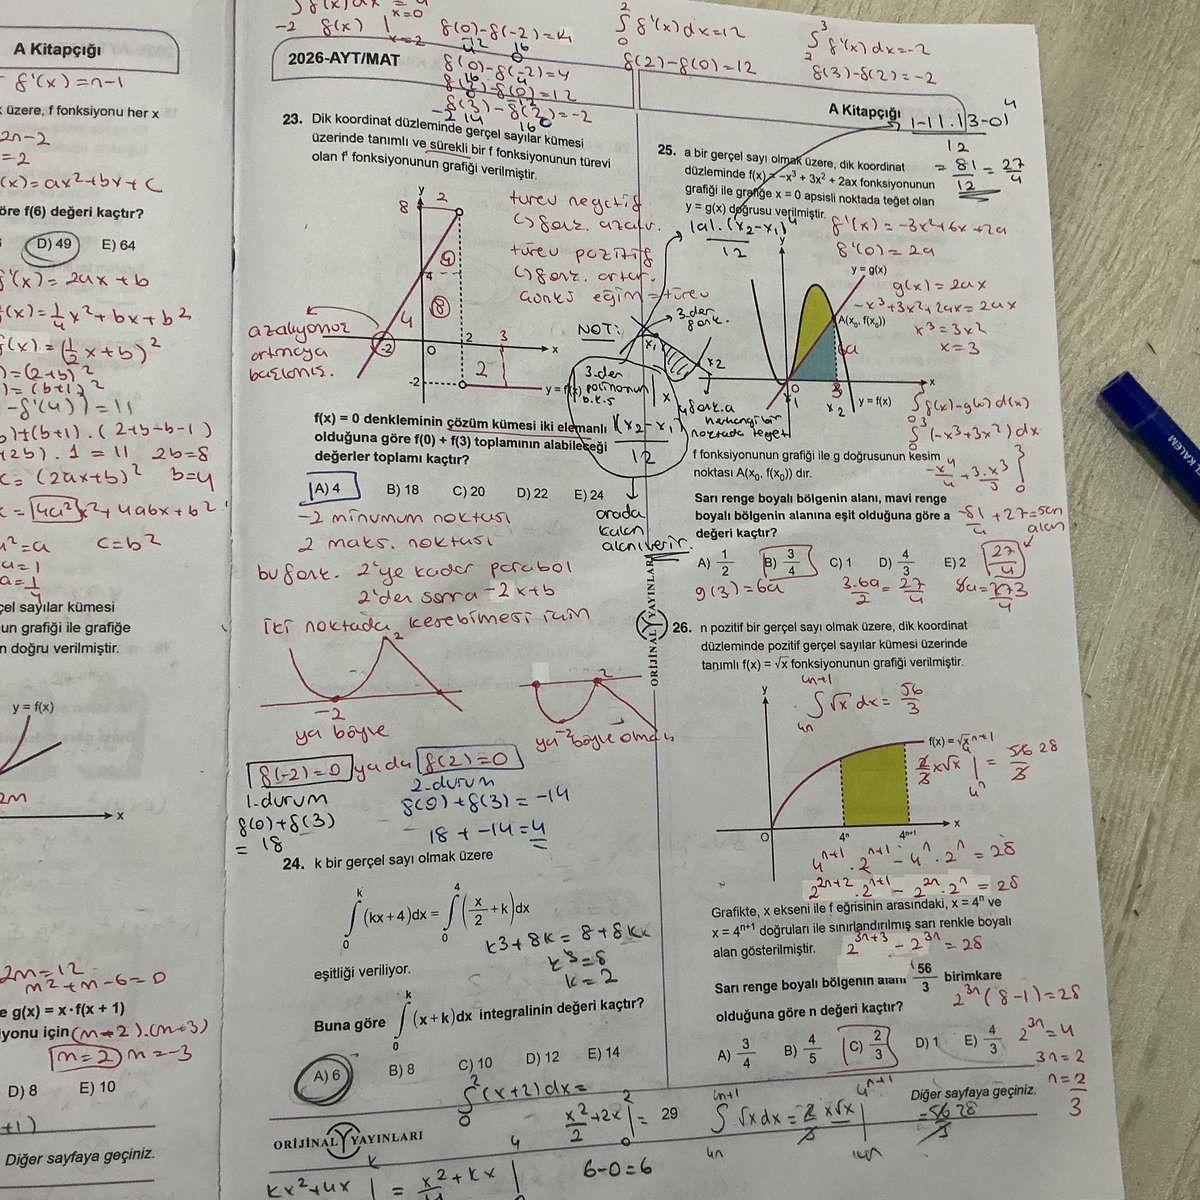 A Kitapçığı
f'(x)=n-1
üzere, f fonksiyonu her x
2n-2
=2
(x)=ax²+bx+c
öre f(6) değeri kaçtır?
D) 49 E) 64
f'(x)=2ax+b
f(x)=1/4x²+bx+b²
f(x)=(1/2x+b)²
)=(2+b)²
)=(b+1)²
-f'(4))=11
b)+(b+1).(2+b-b-1)
+2b).1=11 2b=8
c=(2ax+b)² b=4
x=4a²x²+4abx+b²
4a²=a c=b²
a=1/4
çel sayılar kümesi
un grafiği ile grafiğe
n doğru verilmiştir.
y = f(x)
2m
x
2m=12
m²+m-6=0
e g(x) = x·f(x + 1)
iyonu için (m-2).(m+3)
m=2 m=-3
D) 8 E) 10
+1)
Diğer sayfaya geçiniz.
f(0)-f(-2)=4
2026-AYT/MAT
f(0)-f(-2)=4
f(2)-f(0)=12
f(3)-f(2)=-2
∫₀² f'(x)dx=12
f(2)-f(0)=12
∫₂³ f'(x)dx=-2
f(3)-f(2)=-2
23. Dik koordinat düzleminde gerçel sayılar kümesi
üzerinde tanımlı ve sürekli bir f fonksiyonunun türevi
olan f' fonksiyonunun grafiği verilmiştir.
y
8
2
4
4
8
-2
O
2
3
x
-2
2
türev negatif
↳ fonk. azalır.
türev pozitif
↳ fonk. artar.
çünkü eğim=türev
azalıyoruz
artmaya
başlamış.
NOT:
3.der
polinomun
b.k.s
3.der
fonk.
x₁
x₂
|a|.(x₂-x₁)⁴
12
f(x) = 0 denkleminin çözüm kümesi iki elemanlı
olduğuna göre f(0) + f(3) toplamının alabileceği
değerler toplamı kaçtır?
A) 4 B) 18 C) 20 D) 22 E) 24
-2 minumum noktası
2 maks. noktası
bu fonk. 2'ye kadar parabol
2'den sonra -2x+b
iki noktada kesebilmesi için
arada
kalan
alanı verir.
2
-2
ya böyle
2
-2
ya böyle olmalı
f(-2)=0 ya da f(2)=0
1.durum
f(0)+f(3)
=18
2.durum
f(0)+f(3)=-14
18+-14=4
24. k bir gerçel sayı olmak üzere
∫₀ᵏ (kx + 4)dx = ∫₀⁴ (x/2 + k)dx
k³+8k=8+8k
k³=8
k=2
eşitliği veriliyor.
Buna göre ∫₀ᵏ (x + k)dx integralinin değeri kaçtır?
A) 6 B) 8 C) 10 D) 12 E) 14
∫₀²(x+2)dx=
x²/2+2x|₀²=
6-0=6
ORİJİNAL YAYINLARI
29
A Kitapçığı
|-1|.(3-0)⁴
12
=81/12=27/4
25. a bir gerçel sayı olmak üzere, dik koordinat
düzleminde f(x) = −x³ + 3x² + 2ax fonksiyonunun
grafiği ile grafiğe x = 0 apsisli noktada teğet olan
y = g(x) doğrusu verilmiştir.
f'(x)=-3x²+6x+2a
f'(0)=2a
g(x)=2ax
-x³+3x²+2ax=2ax
x³=3x²
x=3
y
y = g(x)
A(x₀, f(x₀))
6a
O
3
x
x₁
x₂
y = f(x)
fonk.a
herhangi bir
noktada teğet
∫₀³ f(x)-g(x)d(x)
∫₀³(-x³+3x²)dx
-x⁴/4+3.x³/3
f fonksiyonunun grafiği ile g doğrusunun kesim
noktası A(x₀, f(x₀)) dır.
Sarı renge boyalı bölgenin alanı, mavi renge
boyalı bölgenin alanına eşit olduğuna göre a
değeri kaçtır?
-81/4+27=sarı
alan
27/4
A) 1/2 B) 3/4 C) 1 D) 4/3 E) 2
g(3)=6a
3.6a/2=27/4
ORİJİNAL YAYINLARI
26. n pozitif bir gerçel sayı olmak üzere, dik koordinat
düzleminde pozitif gerçel sayılar kümesi üzerinde
tanımlı f(x) = √x fonksiyonunun grafiği verilmiştir.
∫√x dx=56/3
y
f(x) = √x
O
4ⁿ
4ⁿ⁺¹
x
4ⁿ⁺¹.2ⁿ⁺¹-4ⁿ.2ⁿ=28
2²ⁿ⁺².2ⁿ⁺¹-2²ⁿ.2ⁿ=28
Grafikte, x ekseni ile f eğrisinin arasındaki, x = 4ⁿ ve
x = 4ⁿ⁺¹ doğruları ile sınırlandırılmış sarı renkle boyalı
alan gösterilmiştir.
2³ⁿ⁺³-2³ⁿ=28
Sarı renge boyalı bölgenin alanı 56/3 birimkare
olduğuna göre n değeri kaçtır?
2³ⁿ(8-1)=28
2³ⁿ=4
3n=2
n=2/3
A) 3/4 B) 4/5 C) 2/3 D) 1 E) 4/3
Diğer sayfaya geçiniz.
KALEM